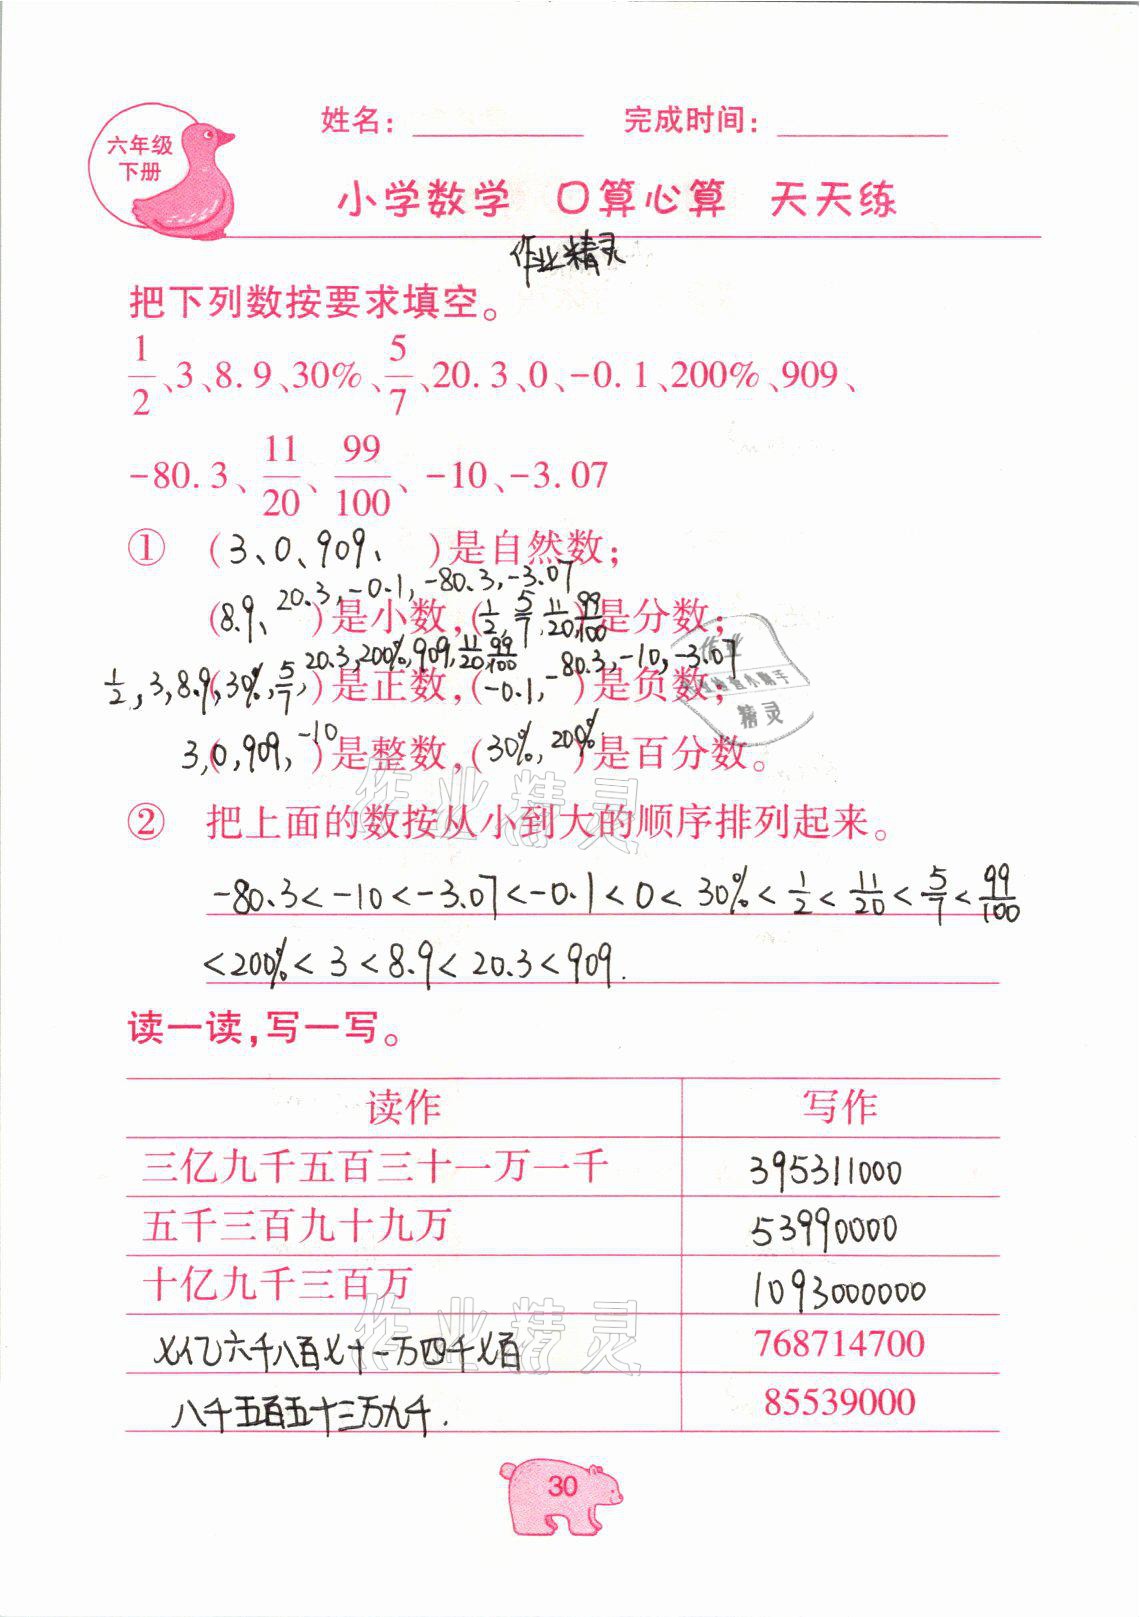 六年级
下册
姓名：
完成时间：
小学数学 口算心算 天天练
作业精灵
把下列数按要求填空。
1/2、3、8.9、30%、5/7、20.3、0、-0.1、200%、909、
-80.3、11/20、99/100、-10、-3.07
① (3、0、909、 )是自然数；
(8.9、20.3,-0.1,-80.3,-3.07)是小数,(1/2,5/7,11/20,99/100)是分数；
(1/2,3,8.9,30%,5/7,20.3,200%,909,11/20,99/100)是正数,(-0.1,-80.3,-10,-3.07)是负数；
(3,0,909,-10)是整数,(30%,200%)是百分数。
② 把上面的数按从小到大的顺序排列起来。
-80.3<-10<-3.07<-0.1<0<30%<1/2<11/20<5/7<99/100
<200%<3<8.9<20.3<909.
读一读,写一写。
读作 写作
三亿九千五百三十一万一千 395311000
五千三百九十九万 53990000
十亿九千三百万 1093000000
七亿六千八百七十一万四千七百 768714700
八千五百五十三万九千. 85539000
30
作业精灵
作业精灵
作业
精灵